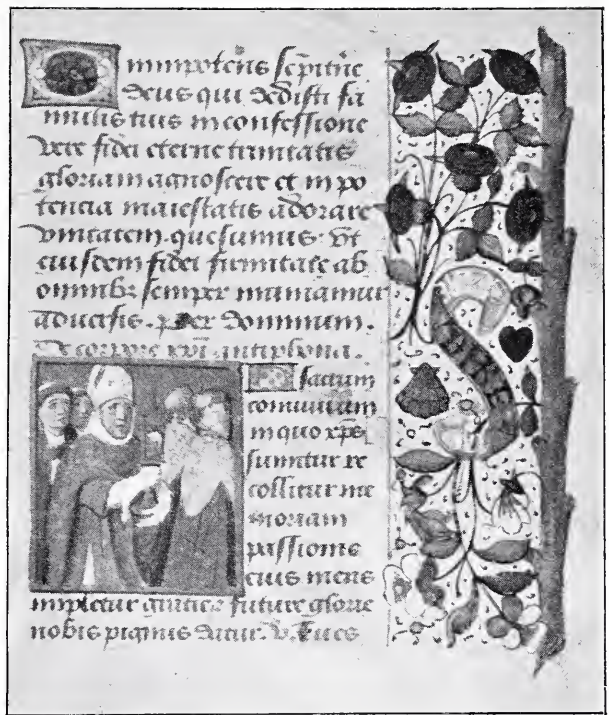 Omnipotens sempitne
deus qui dedisti fa
mulis tuis in confessione
vere fidei eterne trinitatis
gloriam agnoscere et in po
tencia maiestatis adorare
vnitatem. quesumus. vt
eiusdem fidei firmitate ab
omnibz semper muniamur
aduersis. per dominum.
De corpore xpi. antiphona.
O sacrum
conuiuium
in quo xps
sumitur re
collitur me
moriam
passionis
eius mens
impletur gratia future glorie
nobis pignus datur. v.